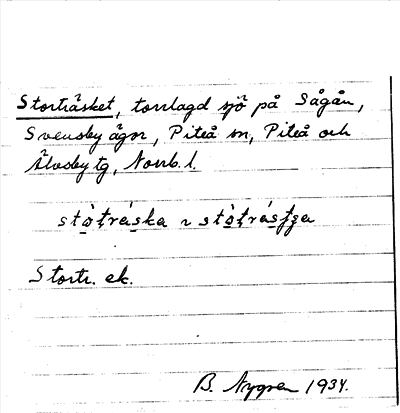 Storträsket, torrlagd sjö på Sågån,
Svensby ägor, Piteå sn, Piteå och
Älvsby tg, Norrb. l.
stò̱ṭrá̱ska ~ stò̱ṭrá̱s
Stortr. ek.
B. Nygren 1934.